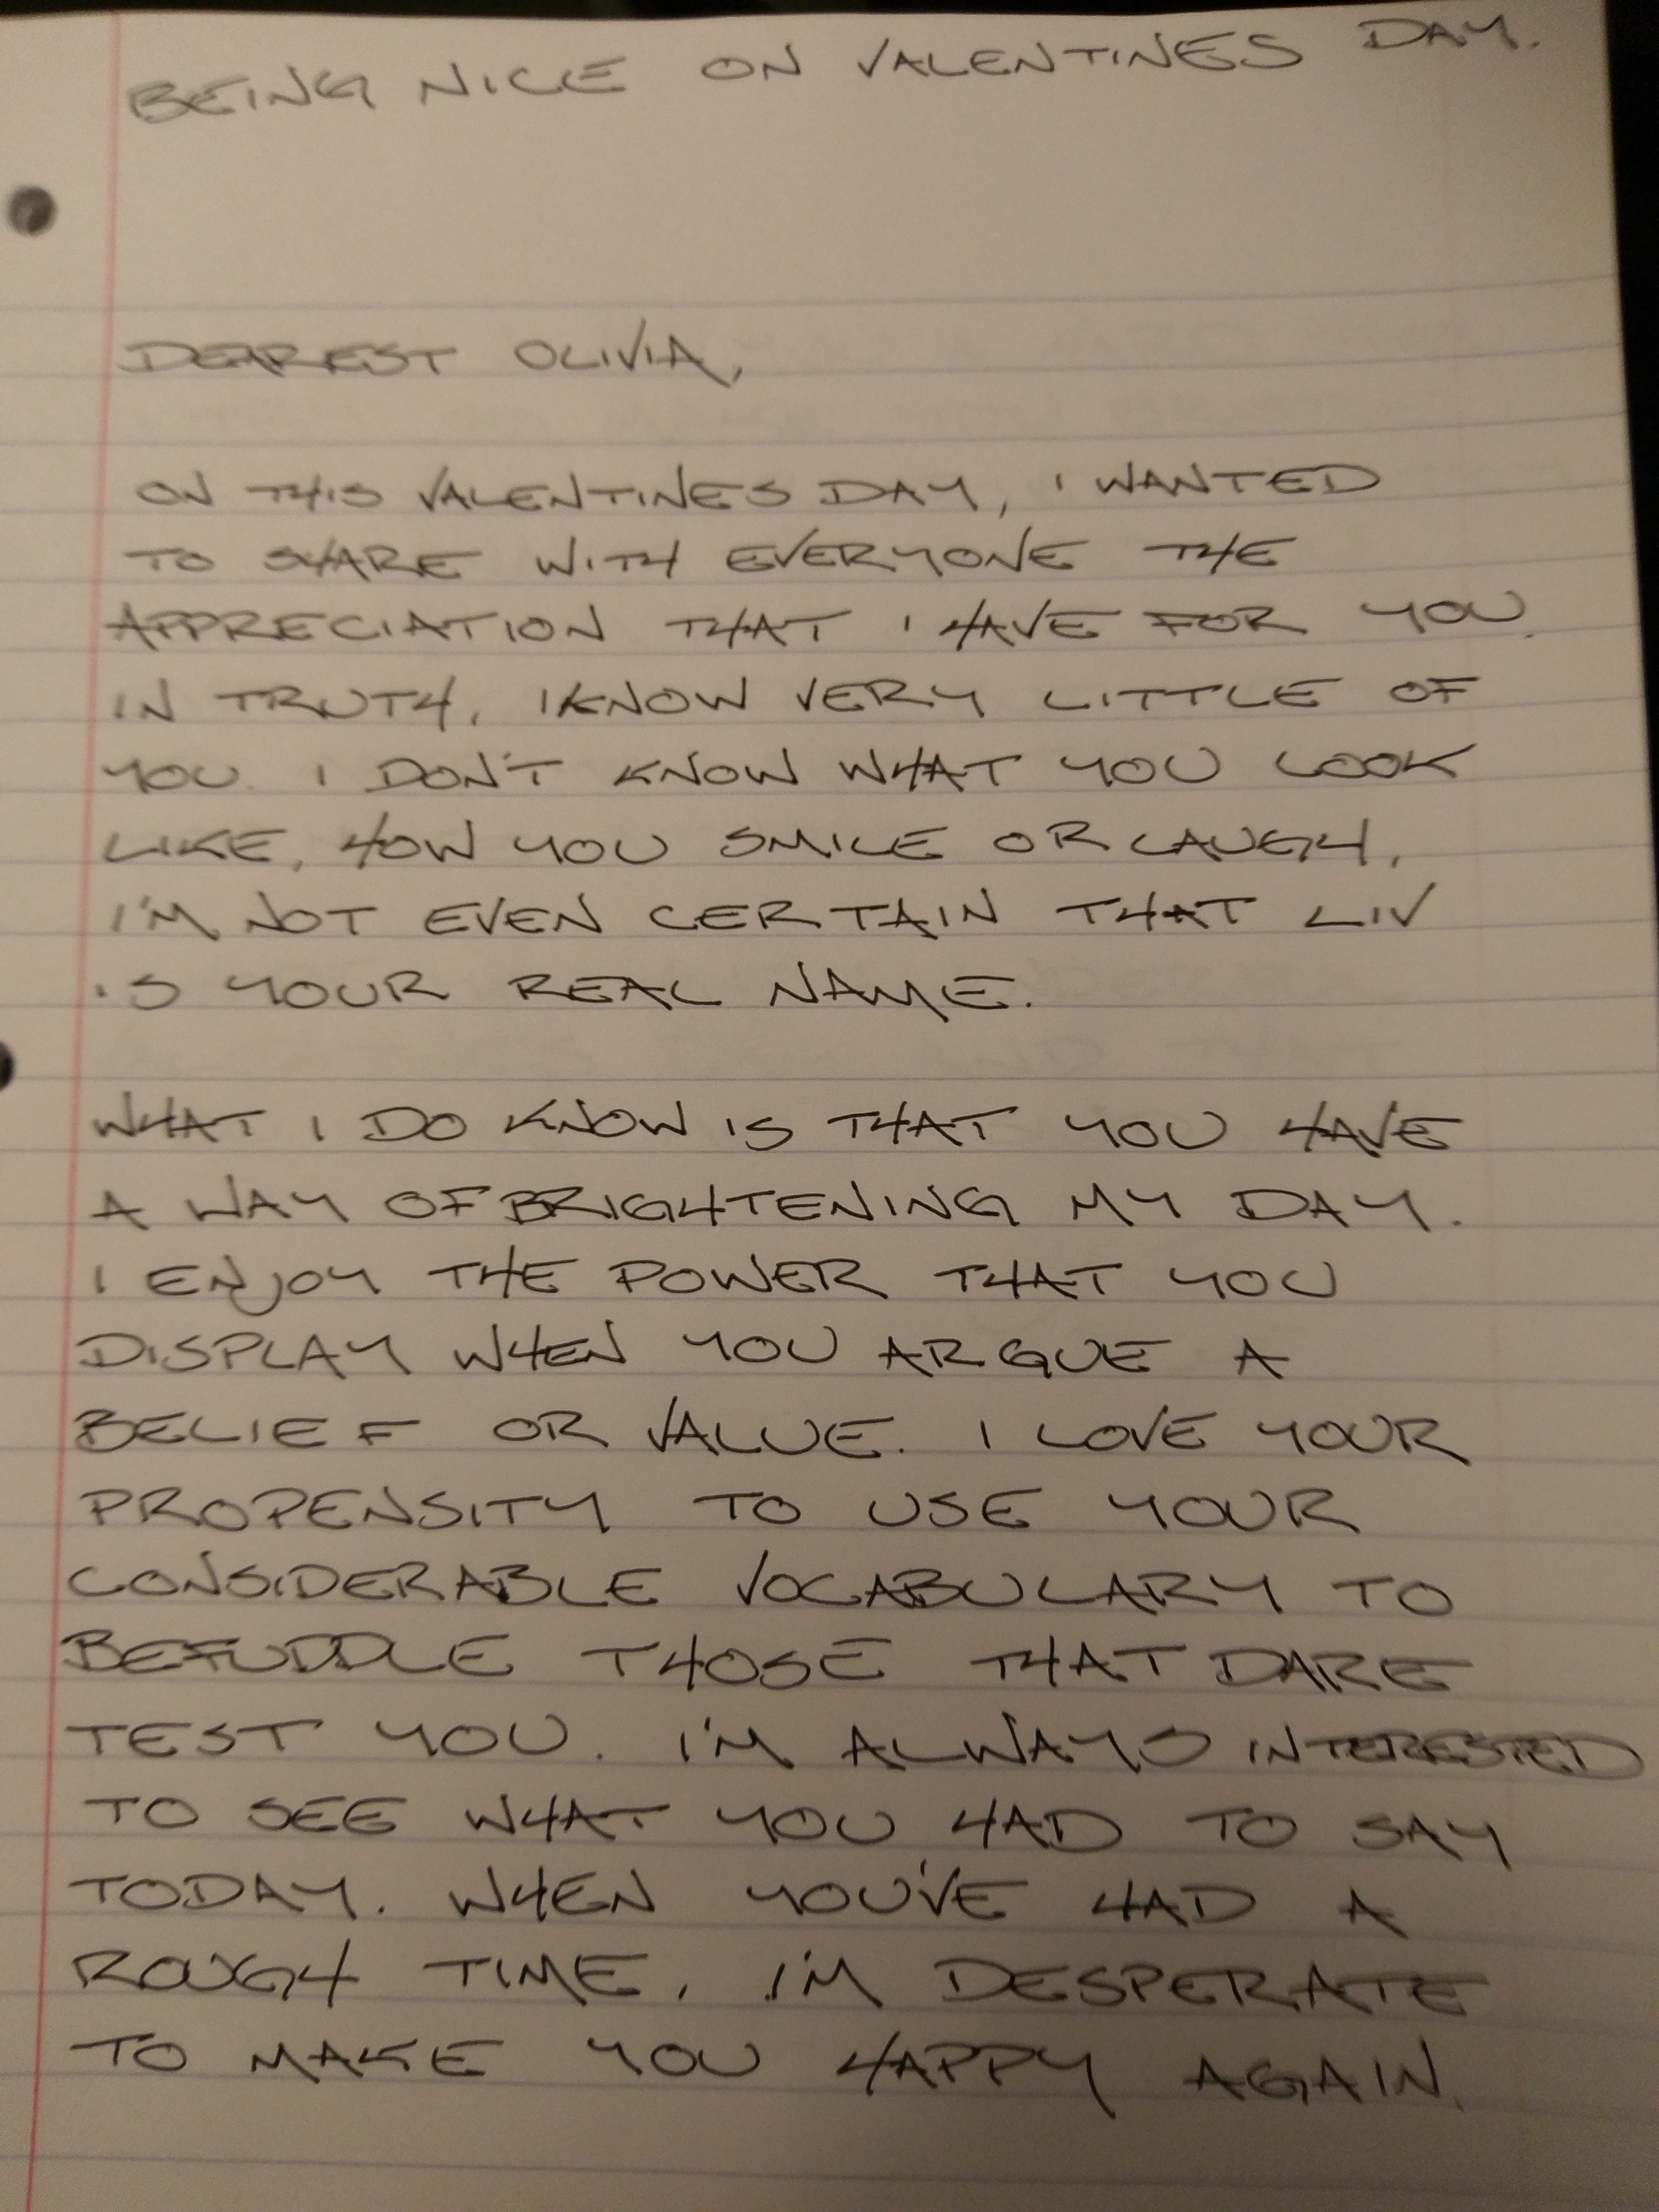 BEING NICE ON VALENTINES DAY.
DEAREST OLIVIA,
ON THIS VALENTINES DAY, I WANTED
TO SHARE WITH EVERYONE THE
APPRECIATION THAT I HAVE FOR YOU.
IN TRUTH, I KNOW VERY LITTLE OF
YOU. I DON'T KNOW WHAT YOU LOOK
LIKE, HOW YOU SMILE OR LAUGH,
I'M NOT EVEN CERTAIN THAT LIV
IS YOUR REAL NAME.
WHAT I DO KNOW IS THAT YOU HAVE
A WAY OF BRIGHTENING MY DAY.
I ENJOY THE POWER THAT YOU
DISPLAY WHEN YOU ARGUE A
BELIEF OR VALUE. I LOVE YOUR
PROPENSITY TO USE YOUR
CONSIDERABLE VOCABULARY TO
BEFUDDLE THOSE THAT DARE
TEST YOU. I'M ALWAYS INTERESTED
TO SEE WHAT YOU HAD TO SAY
TODAY. WHEN YOU'VE HAD A
ROUGH TIME, I'M DESPERATE
TO MAKE YOU HAPPY AGAIN.